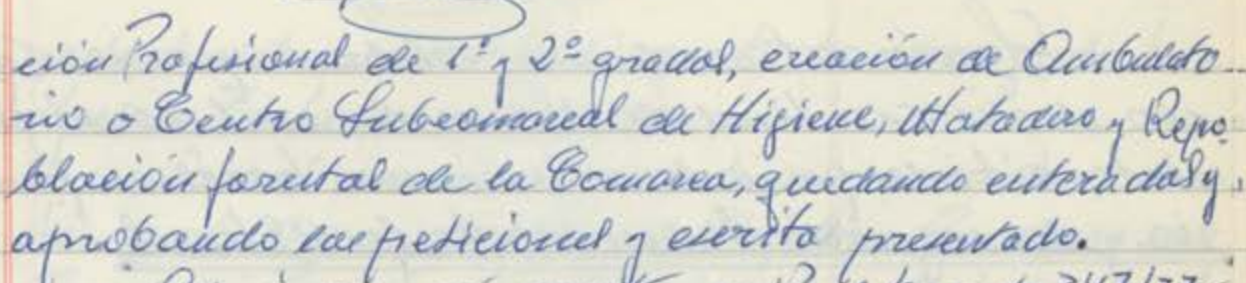 ción Profesional de 1º y 2º grados, creación de Ambulato-
rio o Centro Subcomarcal de Higiene, Matadero y Repo-
blación forestal de la Comarca, quedando enterados y
aprobando las peticiones y escrito presentado.